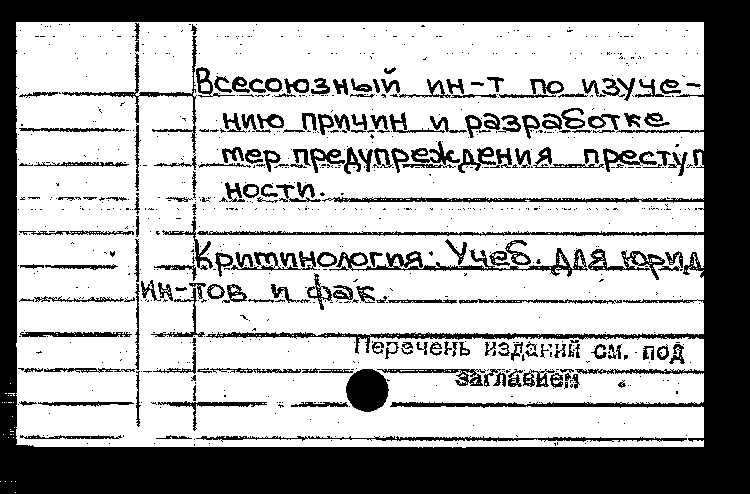 Всесоюзный ин-т по изуче-
нию причин и разработке
мер предупреждения преступ
ности.
Криминология: Учеб. для юрид
ин-тов и фак.
Перечень изданий см. под
заглавием